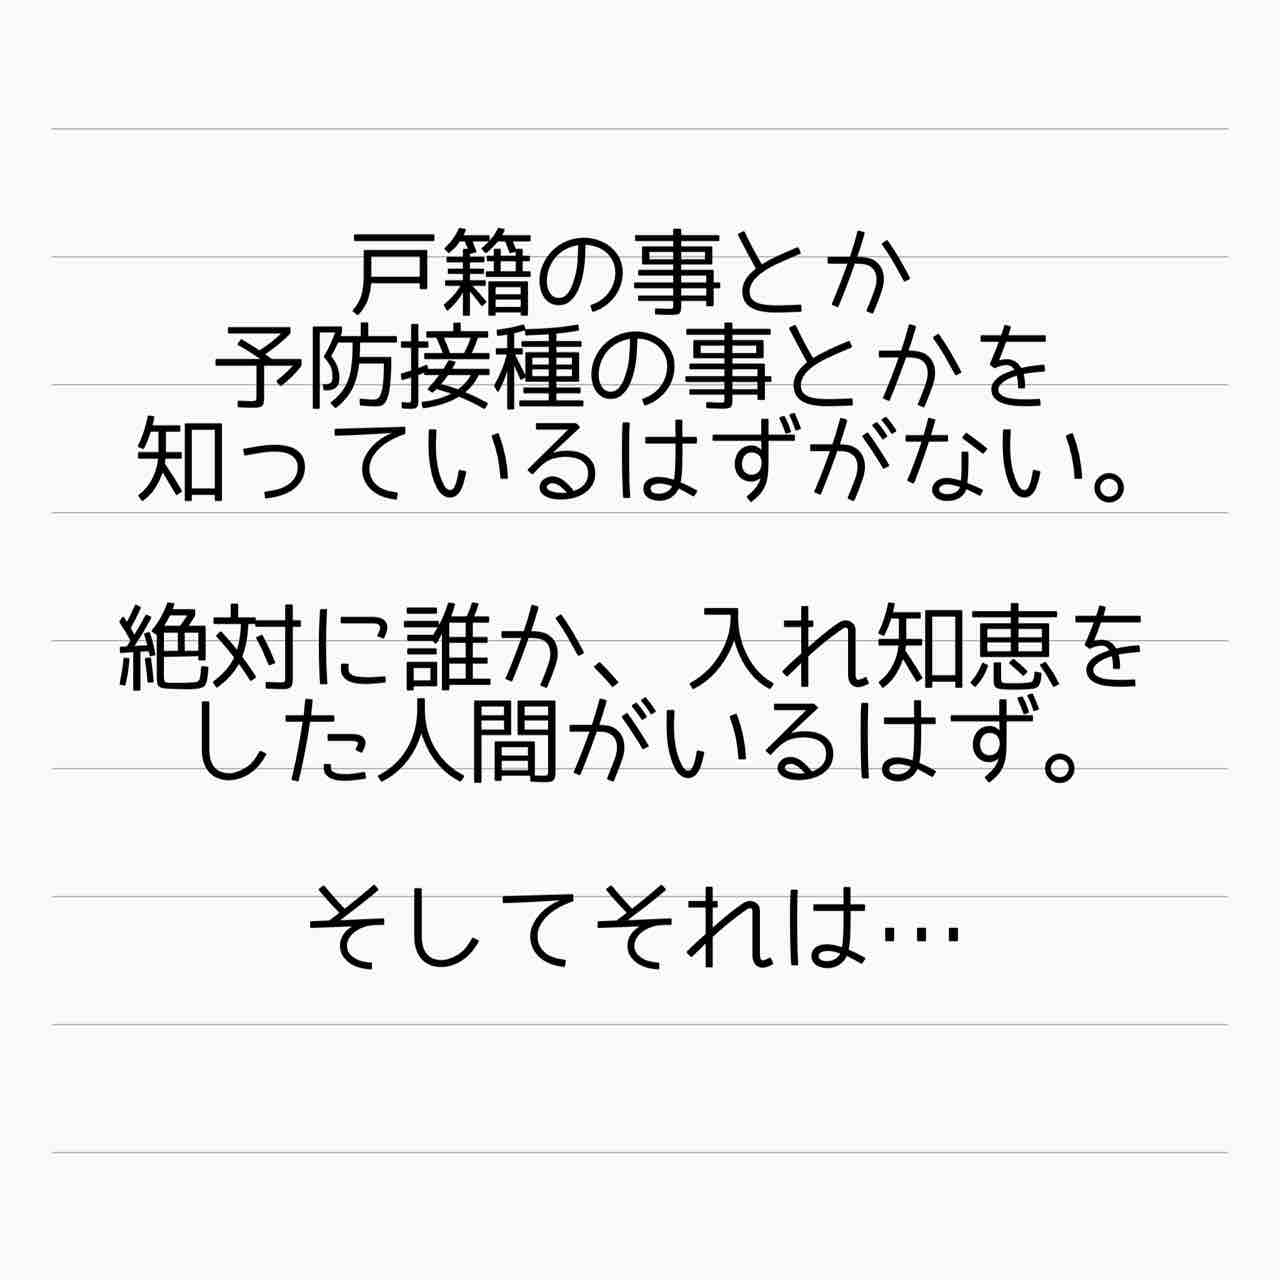 戸籍の事とか
予防接種の事とかを
知っているはずがない。
絶対に誰か、入れ知恵を
した人間がいるはず。
そしてそれは…